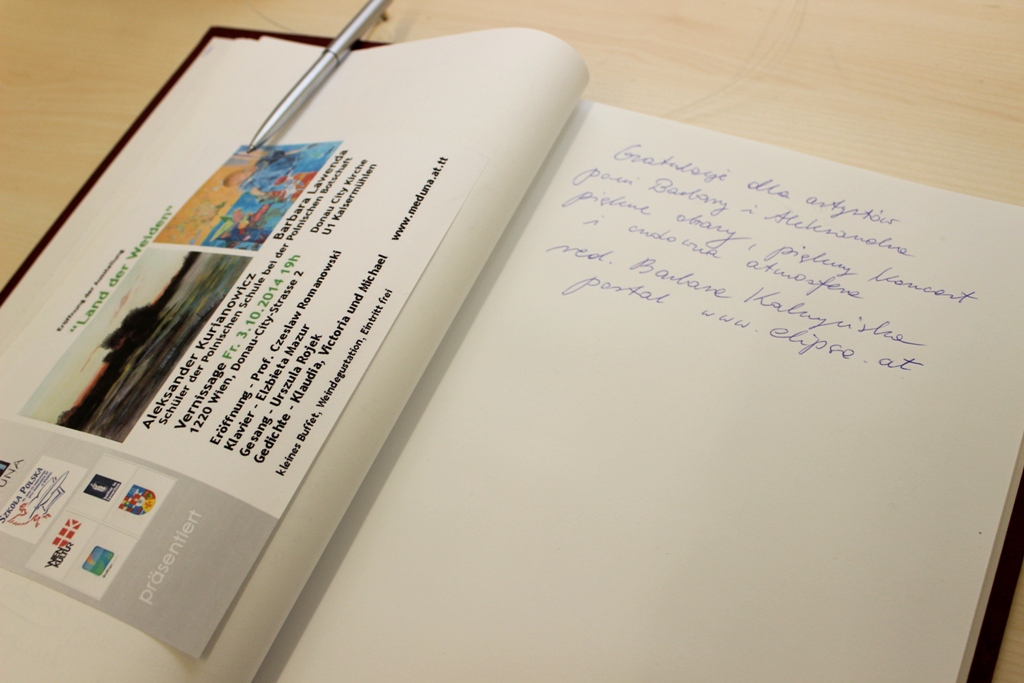 Eröffnung der Ausstellung
"Land der Weiden"
Aleksander Kurianowicz Barbara Lawenda
Schüler der Polnischen Schule bei der Polnischen Botschaft
Vernissage Fr. 3.10.2014 19h Donau City Kirche
1220 Wien, Donau-City-Strasse 2 U1 Kaisermühlen
Eröffnung - Prof. Czeslaw Romanowski
Klavier - Elzbieta Mazur
Gesang - Urszula Rojek
Gedichte - Klaudia, Victoria und Michael
www.meduna.at.tt
kleines Buffet, Weindegustation, Eintritt frei
UNA
SZKOŁA POLSKA
WIEN KULTUR
präsentiert
Gratulacje dla artystów
pani Barbary i Aleksandra
piękne obrazy, piękny koncert
i cudowna atmosfera
red. Barbara
portal www.elipsa.at